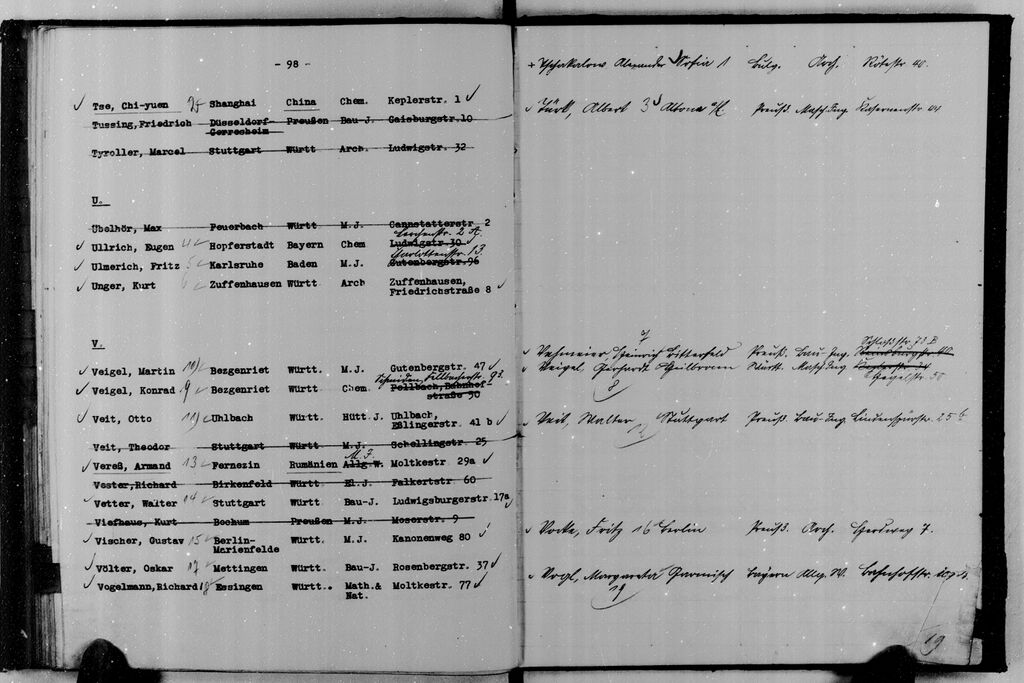 - 98 -
Tse, Chi-yuen Shanghai China Chem. Keplerstr. 1
Tussing,Friedrich Düsseldorf- Preußen Bau-J. Gaisburgstr.10
Gerresheim
Tyroller, Marcel Stuttgart Württ Arch. Ludwigstr. 32
U.
Übelhör, Max Feuerbach Württ M.J. Cannstatterstr 2
Lerchenstr. 2 A.
Ullrich, Eugen 4 Hopferstadt Bayern Chem Ludwigstr 30
Charlottenstr. 13.
Ulmerich, Fritz 5 Karlsruhe Baden M.J. Gutenbergstr.96
Unger, Kurt 6 Zuffenhausen Württ Arch Zuffenhausen,
Friedrichstraße 8
V.
Veigel, Martin 10 Bezgenriet Württ. M.J. Gutenbergstr. 47
93
Veigel, Konrad 9 Bezgenriet Württ Chem. Fellbach,Bahnhof-
straße 50
Veit, Otto 11 Uhlbach Württ. Hütt.J. Uhlbach,
Eßlingerstr. 41 b
Veit, Theodor Stuttgart Württ M.J. Schellingstr. 25
M.J.
Vereß, Armand 13 Fernezin Rumänien Allg.W. Moltkestr 29a
Vester,Richard Birkenfeld Württ El.J. Falkertstr 60
Vetter, Walter 14 Stuttgart Württ Bau-J. Ludwigsburgerstr.17a
Viefhaus, Kurt Bochum Preußen M.J. Moserstr. 9
Vischer, Gustav 15 Berlin- Württ. M.J. Kanonenweg 80
Marienfelde
Völter, Oskar 17 Mettingen Württ. Bau-J. Rosenbergstr. 37
Vogelmann,Richard 18 Essingen Württ.. Math.& Moltkestr. 77
Nat.
+ Tschakalow Alexander Sofia 1 Bulg. Arch. Rötestr 40.
Türk, Albert 3 Altona a/E Preuß. Masch.Ing. Kasernenstr 41
7
Schloßstr. 73 B
Vehmeier, Heinrich Bitterfeld Preuß. Bau-Ing.
Veigel, Gerhardt Heilbronn Württ. Masch.Ing.
8 Hegelstr. 58
Veit, Walter Stuttgart Preuß. Bau-Ing. Lindenspürstr. 25 b
12
Vocke, Fritz 16 Berlin Preuß. Arch. Herdweg 7.
Vogl, Margareta Garmisch Bayern Allg. W. Bahnhofstr.
19
19